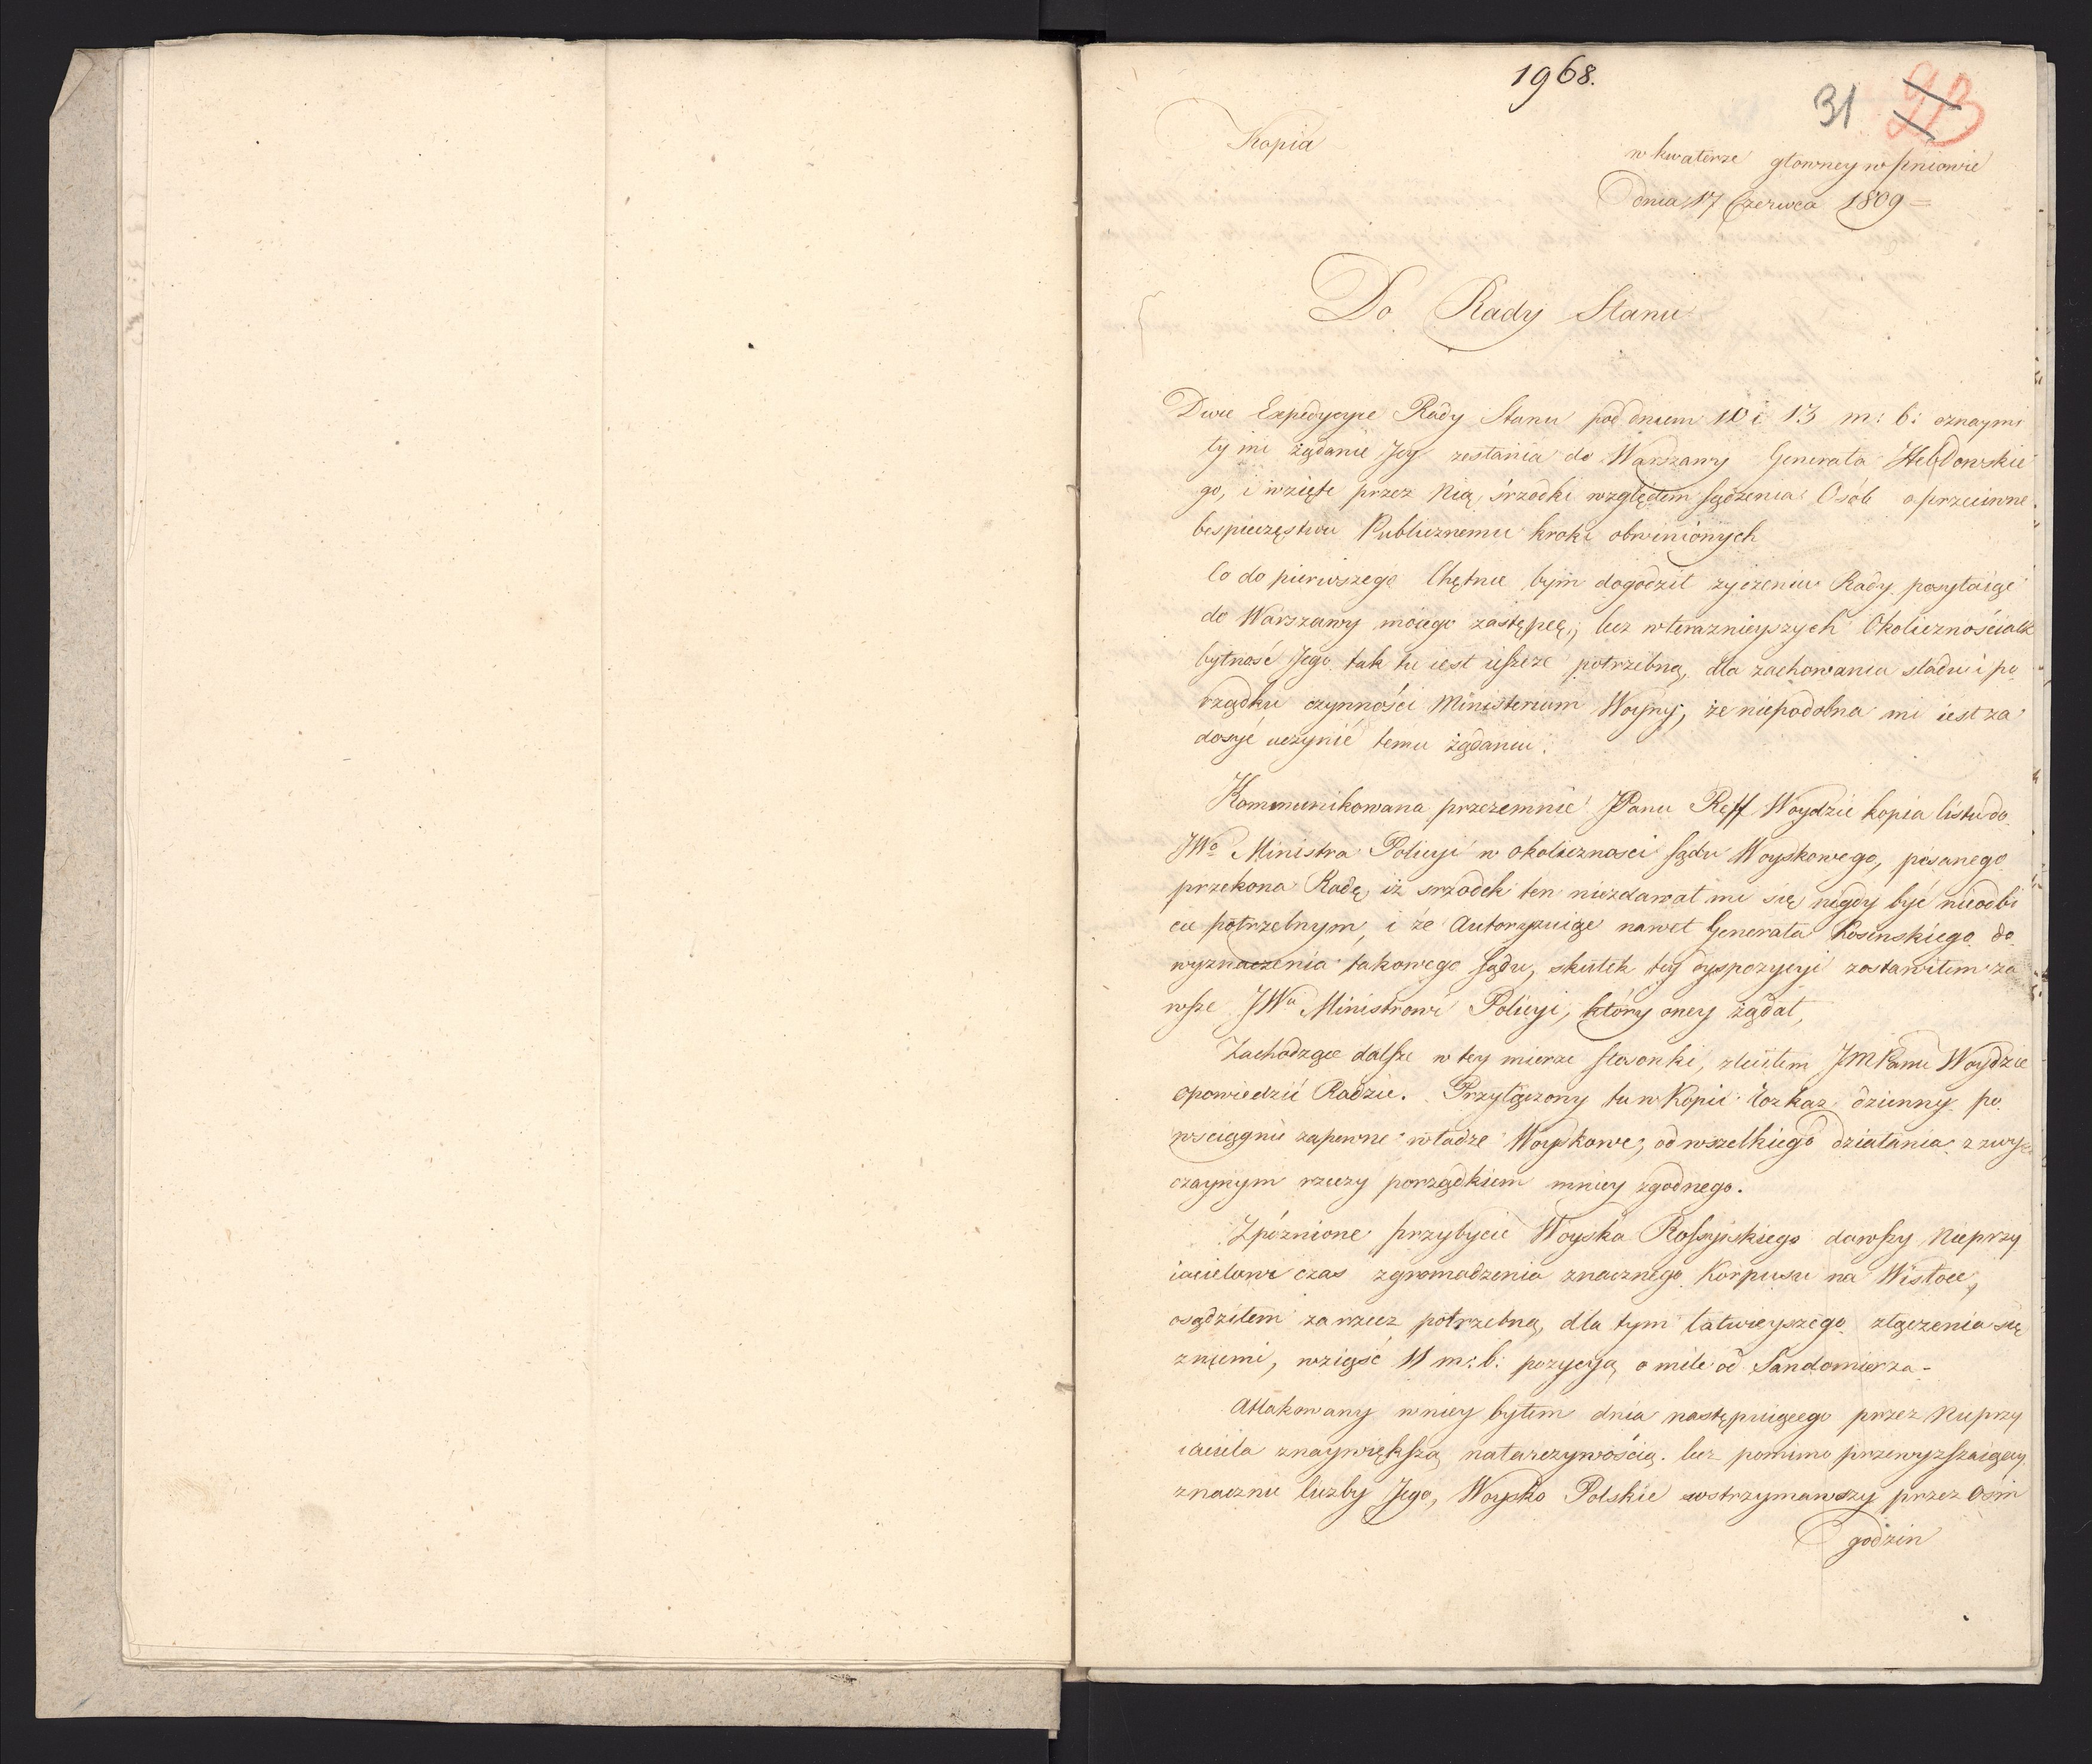 1968.
31 23
Kopia
w kwaterze głowney w Pniowie
Dnia 17 Czerwca 1809 =
Do Rady Stanu
Dwie Expedycye Rady Stanu pod dniem 10 i 13 m: b: oznaymi
ły mi żądanie Jey zesłania do Warszawy Generała Hebdowskie
go, i wzięte przez Nią śrzodki względem sądzenia Osób o przeciwne
bespieczęstwu Publicznemu kroki obwinionych
Co do pierwszego Chętnie bym dogodził zyczeniu Rady posyłaiąc
do Warszawy moiego zastępcę, lecz w teraznieyszych Okolicznościach
bytność Jego tak tu iest ieszcze potrzebną, dla zachowania sladu i po
rządku czynności Ministerium Woyny, że niepodobna mi iest za
dosyć uczynić temu żądaniu.
Kommunikowana przezemnie JPanu Reff Woydzie kopia listu do
JWo Ministra Policyi w okoliczności sądu Woyskowego, pisanego
przekona Radę, iż srzodek ten niezdawał mi się nigdy być nieodbi
cie potrzebnym, i że Autoryzuiąc nawet Generała Kosinskiego do
wyznaczenia takowego sądu, skutek tey dyspozycyi zostawiłem za
wsze JWu Ministrowi Policyi, który oney żądał,
Zachodzące dalsze w tey mierze stosonki, zleciłem JMPanu Woydzie
opowiedzić Radzie. Przyłączony tu w Kopii rozkaz dzienny po
wsciągnie zapewne władze Woyskowe, od wszelkiego działania z zwy
czaynym rzeczy porządkiem mniey zgodnego.
Zpóznione przybycie Woyska Rossyiskiego dawszy Nieprzy
iacielowi czas zgromadzenia znacznego Korpusu na Wisłoce,
osądziłem za rzecz potrzebną, dla tym łatwieyszego złączenia się
z niemi, wziąść 11 m: b: pozycyą o mile od Sandomierza -
Attakowany w niey byłem dnia następuiącego przez Nieprzy
iaciela z naywiększą natarczywością. lecz pomimo przewyzszaiącey
znacznie liczby Jego, Woysko Polskie wstrzymawszy przez Osm
godzin